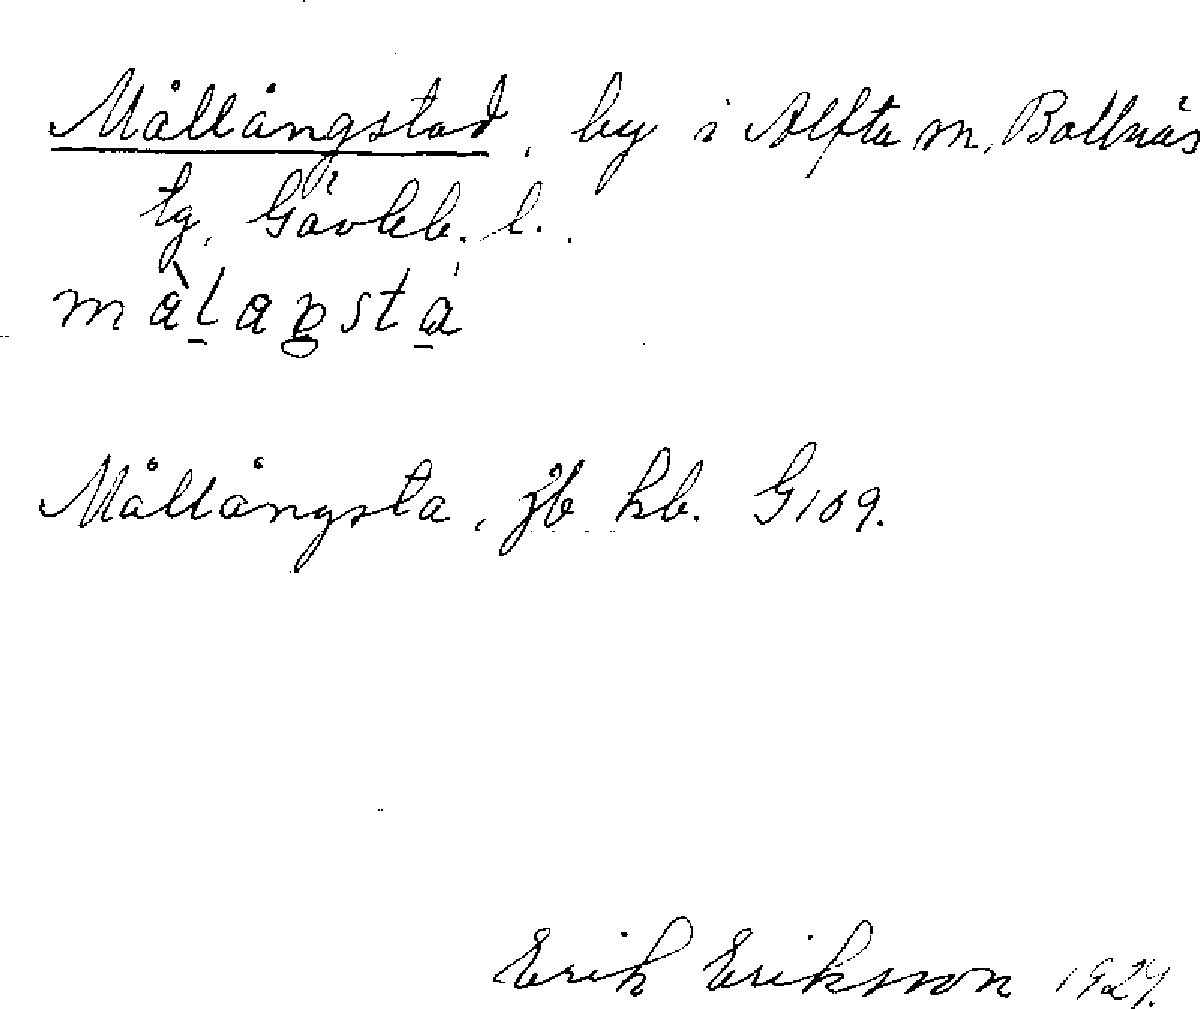 Mållångstad, by i Alfta sn, Bollnäs
tg. Gävleb. l.
Mållångsta, jb hb. G109.
Erik Eriksson 1927.